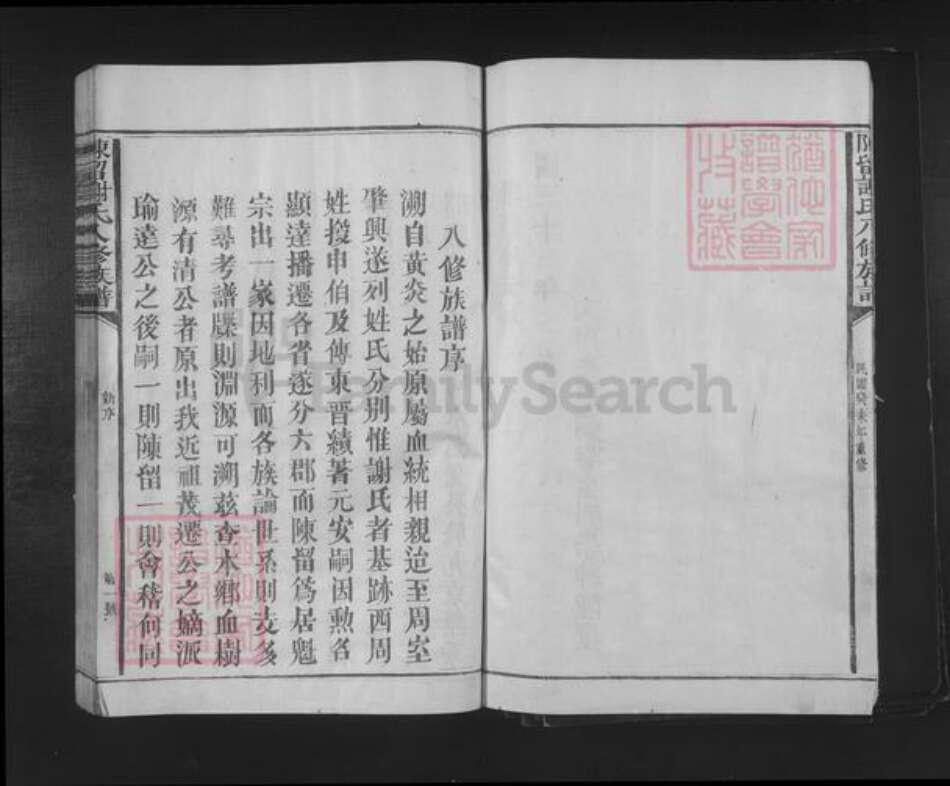 陳留謝氏八修族譜
民國癸未年重修
猶他家
譜學會
收藏
八修族譜序
溯自黃炎之始原屬血統相親迨至周室
肇興遂列姓氏分別惟謝氏者基跡西周
姓授申伯及傳東晉績著元安嗣因勲名
顯達播遷各省遂分六郡而陳留爲居魁
宗出一家因地利而各族論世系則支多
難尋考譜牒則淵源可溯兹查本鄉血樹
源有清公者原出我近祖茂遷公之嫡派
瑜達公之後嗣一則陳留一則會稽何同
陳留謝氏八修族譜
新序
第一號
FamilySearch